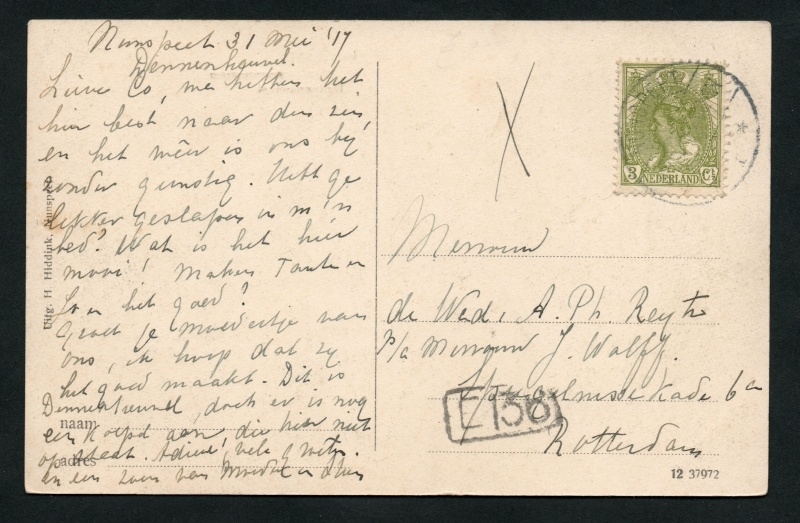 Nunspeet 31 Mei '17
Dennenheuvel.
Lieve Co, we hebben het
hier best naar den zin
en het weer is ons bij
zonder gunstig. Hebt ge
lekker geslapen in m'n
bed? Wat is het hier
mooi! Maken Tante en
Jo er het goed?
Groet je moedertje van
ons, ik hoop dat zij
het goed maakt. Dit is
Dennenheuvel, doch er is nog
een aan, die hier niet
op staat. Adieu, vele groetjes
en een zoen van Moeder en
naam
adres
Uitg. H Hiddink, Nunspeet
3 Ct
NEDERLAND
Mevrouw
de Wed. A. Ph. Reyst
p/a Mevrouw J. Wolff.
kade 6a
Rotterdam
E 138
12 37972
X